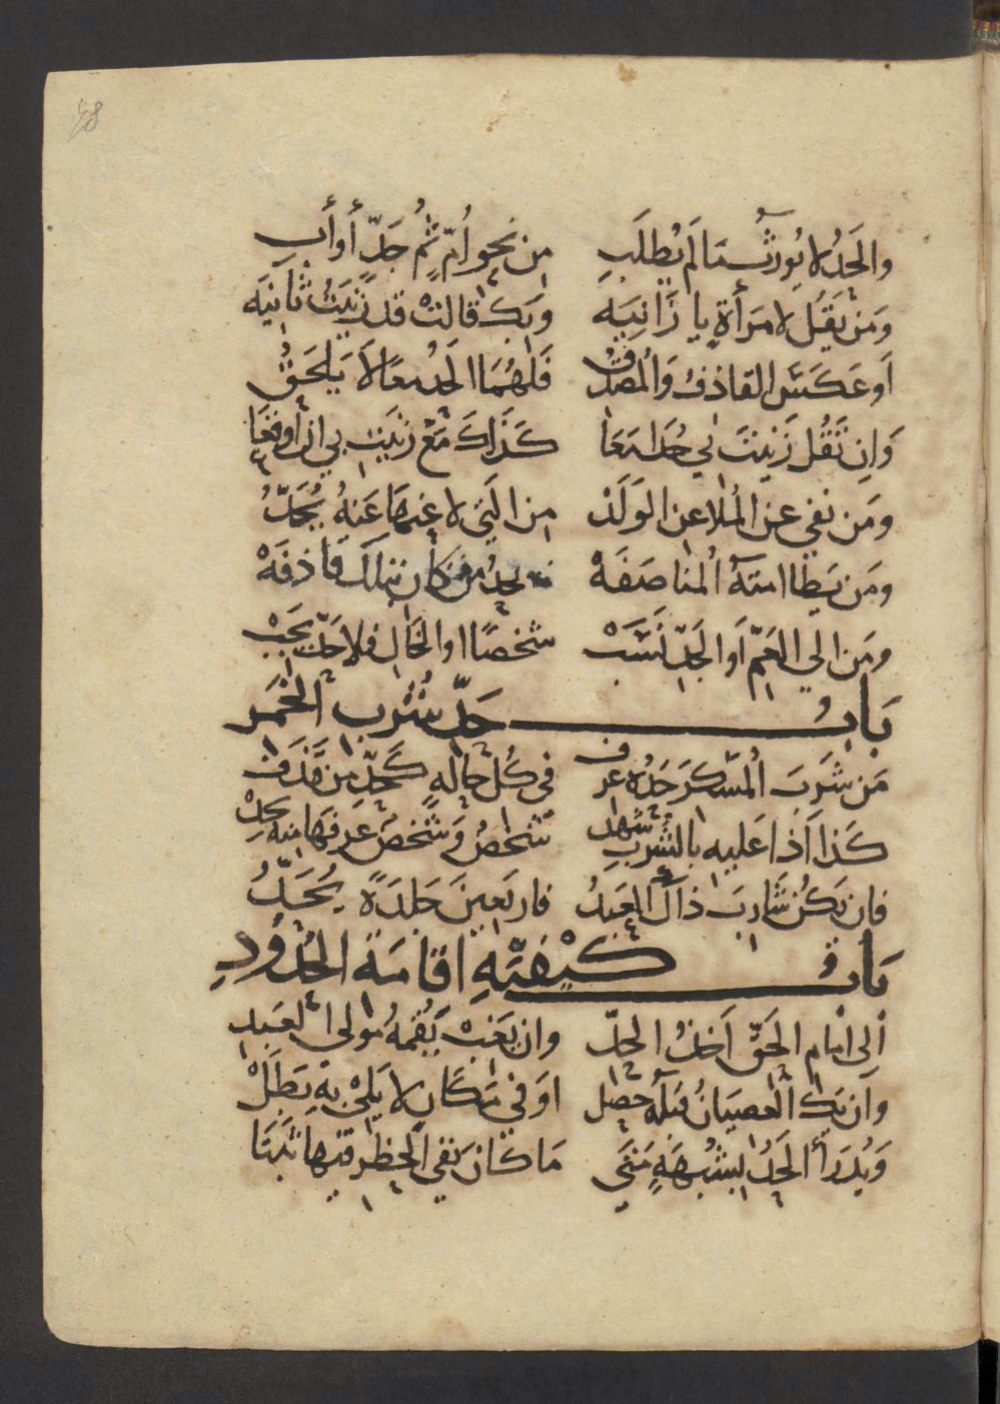 48
والحد لا يورث ما لم يطلب من نحو أم ثم جد أو أب
ومن يقل لامرأة يا زانيه وبك قالت قد زنيت ثانيه
أو عكس القاذف والمصدق فلهما الحد معا لا يلحق
وإن تقل زنيت بي حدا معا كذاك مع زنيت بي ان أوقعا
ومن نفي عن الملاعن الولد من التي لاعنها عنه يحد
ومن يطا امته المناصفه يحد من كان بتلك قاذفه
ومن الي العم أو الجد نسب شخصا او الخال فلا حد يجب
باب حد شرب الخمر
من شرب المسكر حده عرف في كل حاله كحد من قذف
كذا اذا عليه بالشرب شهد شخص وشخص عرفها منه يجد
فان يكن شارب ذاك العبد فاربعين جلدة يحد
باب كيفية اقامة الحدود
الى امام الحق أخذ الحد وان يغب يقمه مولى العبد
وان يك العصيان قبله حصل او في مكان لا يلي به بطل
ويدرأ الحد لشبهة متى ما كان نفي الحظر فيها ثبتا